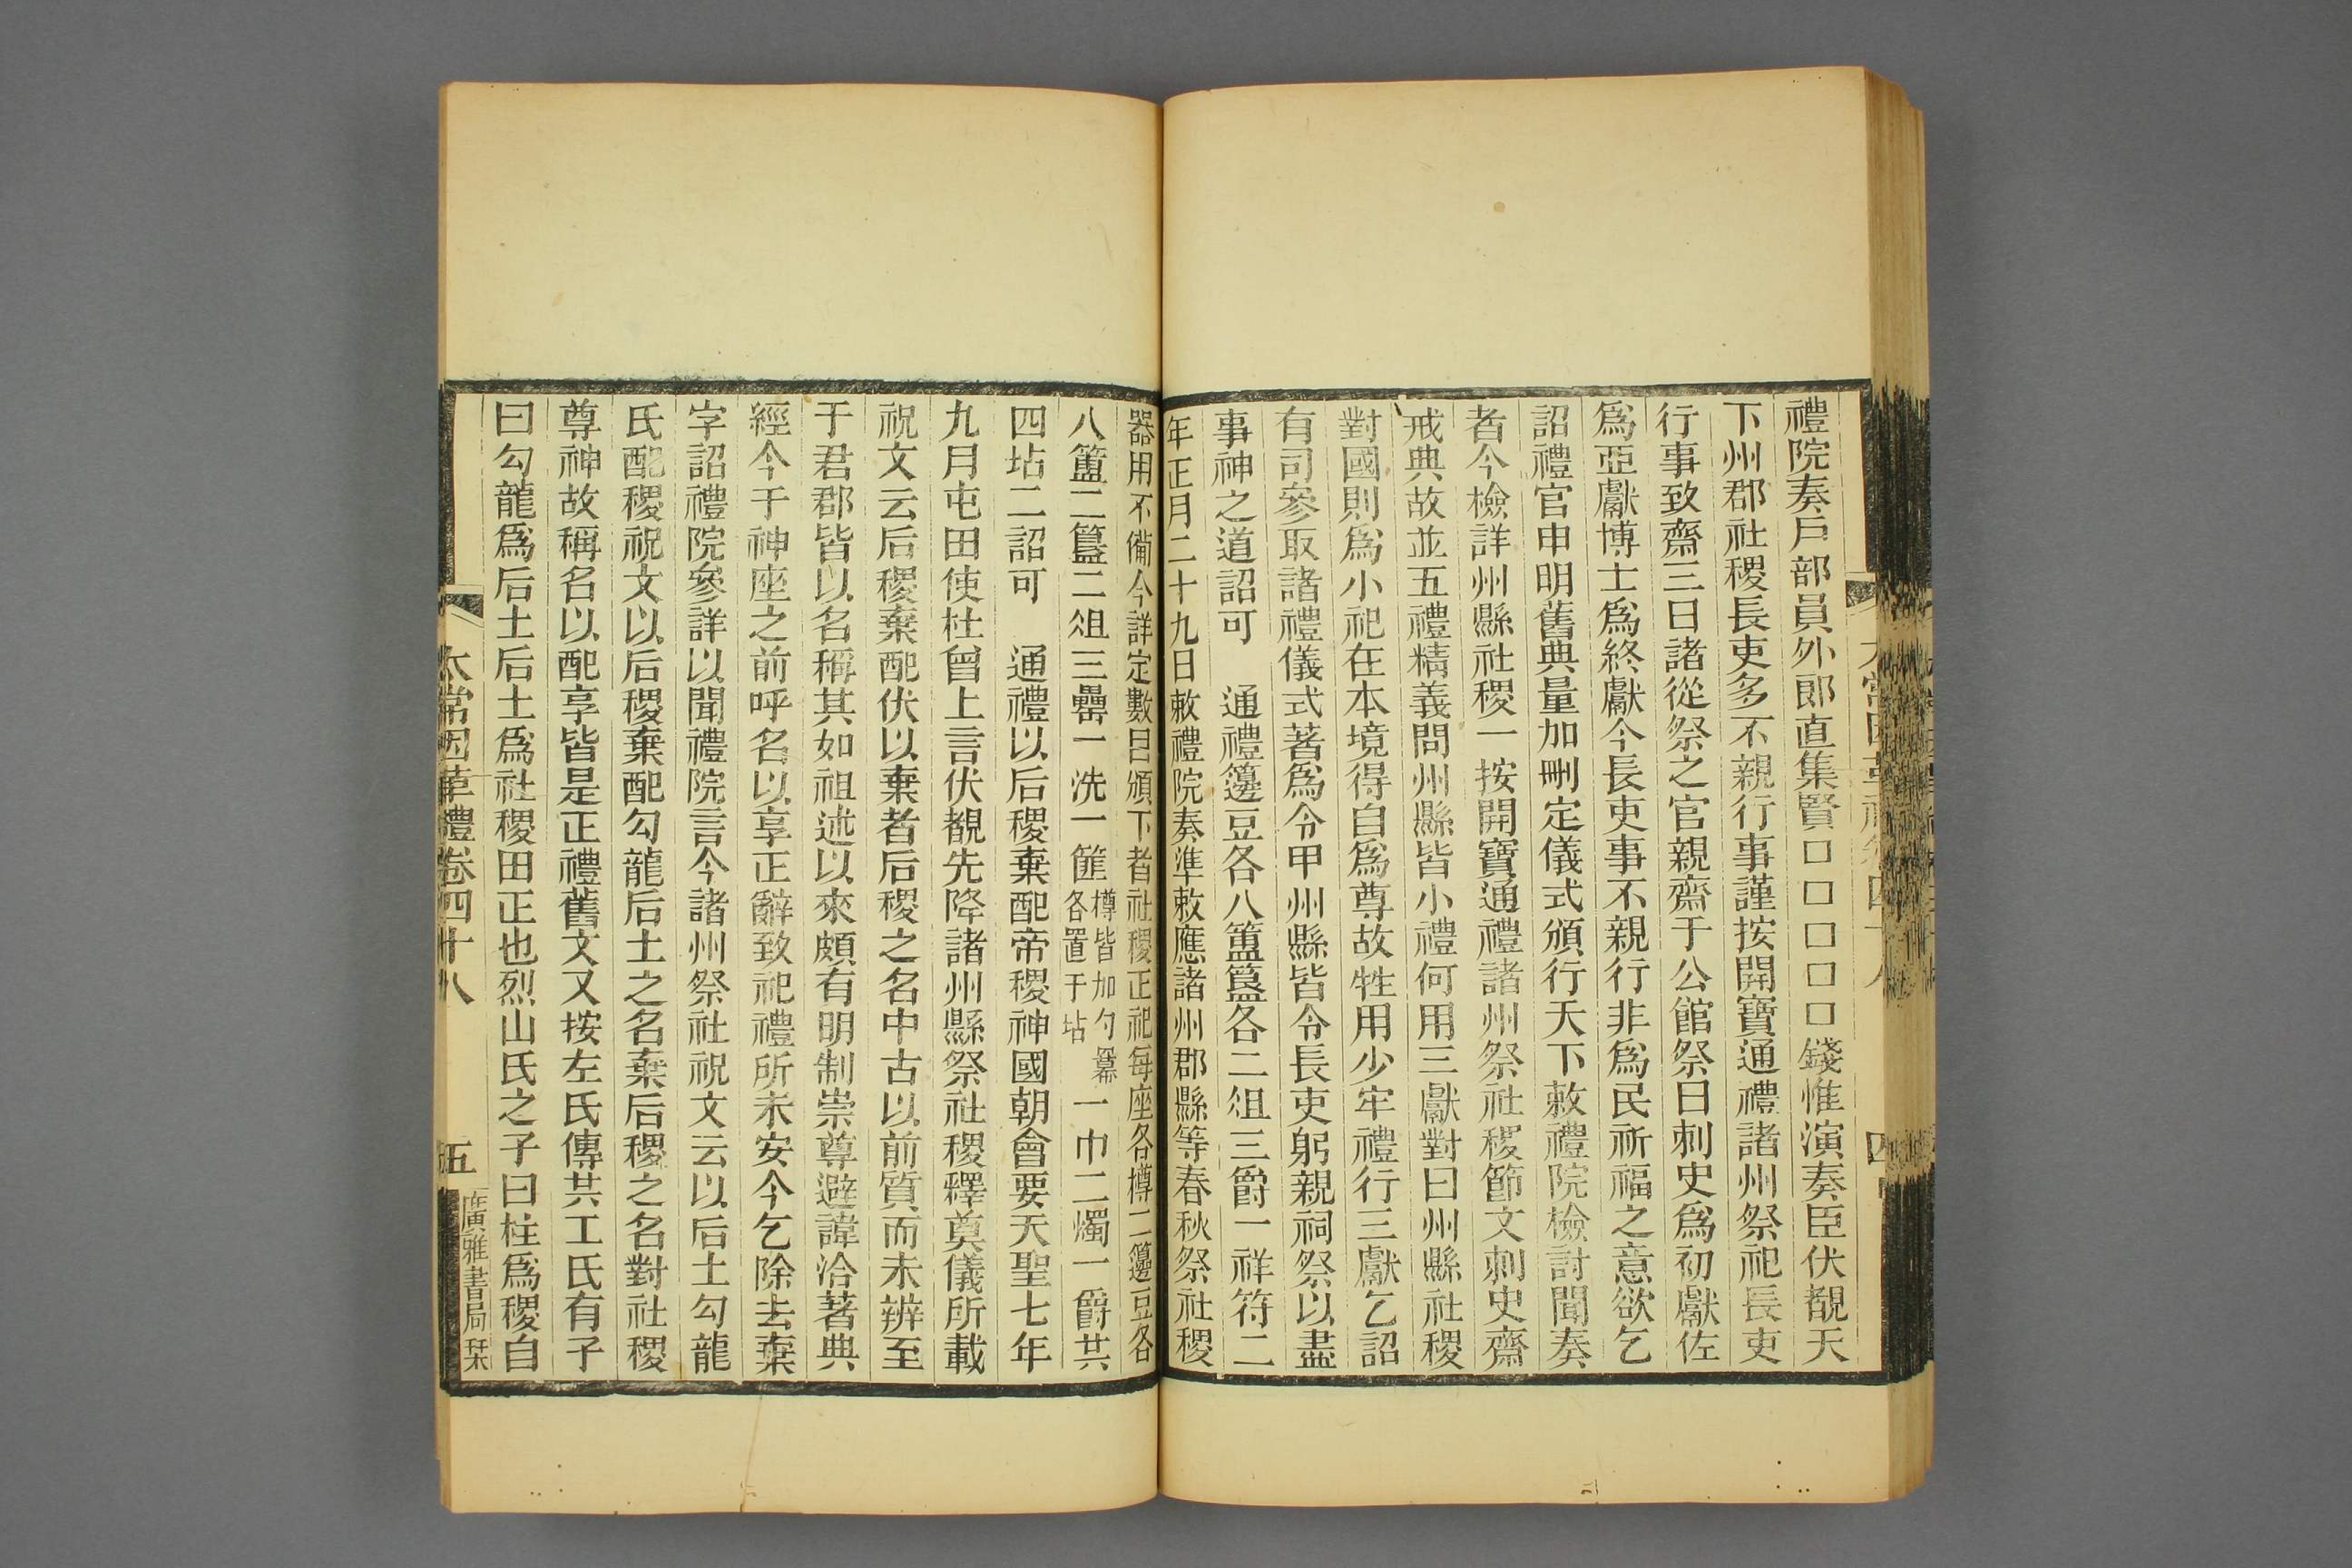 禮院奏戶部員外郎直集賢□□□□□錢惟演奏臣伏覩天
下州郡社稷長吏多不親行事謹按開寶通禮諸州祭祀長吏
行事致齋三日諸從祭之官親齋于公館祭日刺史爲初獻佐
爲亞獻博士爲終獻今長吏事不親行非爲民祈福之意欲乞
詔禮官申明舊典量加刪定儀式頒行天下敕禮院檢討聞奏
者今檢詳州縣社稷一按開寶通禮諸州祭社稷節文刺史齋
戒典故並五禮精義問州縣皆小禮何用三獻對曰州縣社稷
對國則爲小祀在本境得自爲尊故牲用少牢禮行三獻乞詔
有司參取諸禮儀式著爲令甲州縣皆令長吏躬親祠祭以盡
事神之道詔可　通禮籩豆各八簠簋各二俎三爵一祥符二
年正月二十九日敕禮院奏準敕應諸州郡縣等春秋祭社稷
器用不備今詳定數目頒下者社稷正祀每座各樽二籩豆各
八簠二簋二俎三罍一洗一篚樽皆加勺冪各置于坫一巾二燭一爵共
四坫二詔可　通禮以后稷棄配帝稷神國朝會要天聖七年
九月屯田使杜曾上言伏覩先降諸州縣祭社稷釋奠儀所載
祝文云后稷棄配伏以棄者后稷之名中古以前質而未辨至
于君郡皆以名稱其如祖述以來頗有明制崇尊避諱洽著典
經今于神座之前呼名以享正辭致祀禮所未安今乞除去棄
字詔禮院參詳以聞禮院言今諸州祭社祝文云以后土勾龍
氏配稷祝文以后稷棄配勾龍后土之名棄后稷之名對社稷
尊神故稱名以配享皆是正禮舊文又按左氏傳共工氏有子
曰勾龍爲后土后土爲社稷田正也烈山氏之子曰柱爲稷自
太常因革禮卷四十八
五
廣雅書局栞